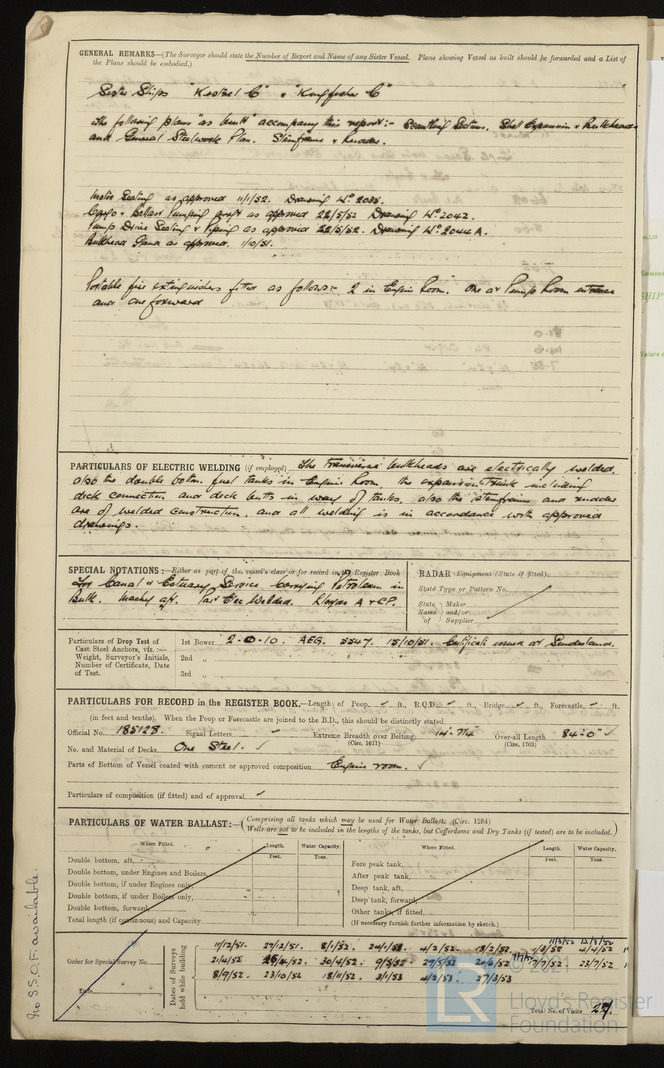 GENERAL REMARKS—(The Surveyor should state the Number of Report and Name of any Sister Vessel. Plans showing Vessel as built should be forwarded and a List of
the Plans should be embodied.)
Sister Ships "Kestrel C" & "Kingfisher C"
The following plans "as built" accompany this report:- Scantling Sections. Shell Expansion & Bulkheads
and General Steelwork Plan. Sternframe & Rudder.
Motor Seating as approved 11/1/52. Drawing No 2035.
Cargo & Ballast Pumping as approved 22/5/52 Drawing No 2042.
Pump Drive Seating & Piping as approved 22/5/52. Drawing No 2044A.
Bulkhead Gland as approved. 1/10/51.
Portable fire extinguishers fitted as follows:- 2 in Engine Room. One at Pump Room entrance
and one forward
PARTICULARS OF ELECTRIC WELDING (if employed) The transverse bulkheads are electrically welded,
also the double bottom fuel tanks in Engine Room, the expansion trunk including
deck connection and deck butts in way of tanks, also the sternframe and rudder
are of welded construction, and all welding is in accordance with approved
drawings.
SPECIAL NOTATIONS:—Either as part of the vessel's class or for record in the Register Book
For Canal & Estuary Service Carrying Petroleum in
Bulk. Machy aft. Part Elec Welded. Lloyds A & CP.
RADAR Equipment (State if fitted)
State Type or Pattern No.
State Name of
Maker and/or Supplier
Particulars of Drop Test of
Cast Steel Anchors, viz.:—
Weight, Surveyor's Initials,
Number of Certificate, Date
of Test.
1st Bower 2-0-10. AEG. 5547. 15/10/51. Certificate issued at Sunderland.
2nd "
3rd "
PARTICULARS FOR RECORD in the REGISTER BOOK.—Length of Poop ✓ ft., R.Q.D. ✓ ft., Bridge ✓ ft., Forecastle ✓ ft.
(in feet and tenths). When the Poop or Forecastle are joined to the B.D., this should be distinctly stated
Official No. 185128. Signal Letters ✓ Extreme Breadth over Belting (Circ. 1611) Over-all Length (Circ. 1703) 84-0 ✓
No. and Material of Decks One Steel. ✓
Parts of Bottom of Vessel coated with cement or approved composition Engine room. ✓
Particulars of composition (if fitted) and of approval ✓
PARTICULARS OF WATER BALLAST:—(Comprising all tanks which may be used for Water Ballast. (Circ. 1284)
Wells are not to be included in the lengths of the tanks, but Cofferdams and Dry Tanks (if tested) are to be included.)
Where Fitted. Length. Water Capacity. Where Fitted. Length. Water Capacity.
Feet. Tons. Feet. Tons.
Double bottom, aft, Fore peak tank,
Double bottom, under Engines and Boilers, After peak tank,
Double bottom, if under Engines only, Deep tank, aft,
Double bottom, if under Boilers only, Deep tank, forward,
Double bottom, forward, Other tanks, if fitted,
Total length (if continuous) and Capacity (If necessary furnish further information by sketch.)
Order for Special Survey No.
Date
Dates of Surveys held while building
11/12/51. 27/12/51. 8/1/52. 24/1/52. 4/2/52. 18/2/52. 1/3/52 11/3/52 12/3/52 4/4/52
2/4/52 30/4/52. 9/5/52. 29/5/52 20/6/52 7/7/52 23/7/52
8/9/52. 23/10/52 18/11/52 2/1/53 4/2/53. 27/3/53
Total No. of Visits 27.
No S.S.O.F. available.
© 2021
LR
Lloyd's Register
Foundation